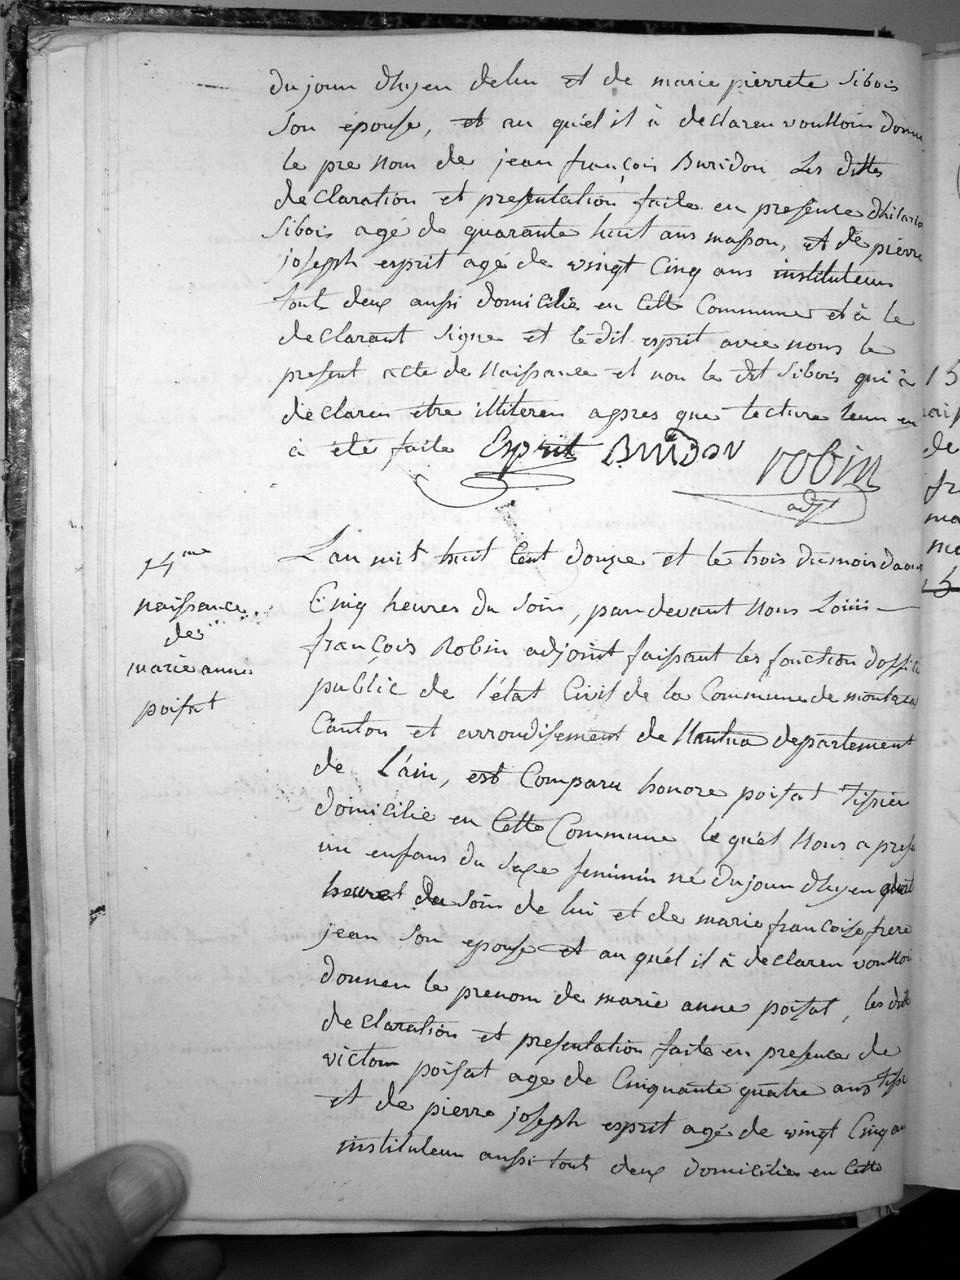 du jour d'hyer de lui et de marie pierrete Sibois
Son épouse, et au quél il à declarer voulloir donner
le pre nom de jean françois Buridon Les dittes
declaration et presentation faite en presence d'hilaire
Sibois agé de quarante huit ans masson, et de pierre
joseph esprit agé de wingt Cinq ans instituteur
tout deux aussi domicilie en Cette Commune et à le
declarant Signe et le dit esprit avec nous le
present acte de Naissance et non le dit Sibois qui à
déclarer être illiterer apres que lecture leur en
à été faite Esprit Buridon robin
adjt
14me
naissance
de
marie anne
poisat
L'an mil huit Cent douze et le trois du mois d'aout
Cinq heures du Soir, par devant Nous Louis
françois Robin adjoint faissant les fonction d'officier
public de l'état Civil de la Commune de
Canton et arrondisement de Nantua departement
de L'ain, est Comparu honore poisat tissier
domicilie en Cette Commune le quél Nous a presenté
un enfans du Sexe feminin né du jour d'hyer
heures du Soir de lui et de marie françoise frere
jean Son epouse et au quél il à declarer voulloir
donner le prenom de marie anne poisat, les dite
declaration et presentation faite en presence de
victor poisat age de Cinquante quatre ans tissier
et de pierre joseph esprit agé de wingt Cinq ans
instituteur aussi tout deux domicilie en Cette
15
de
15